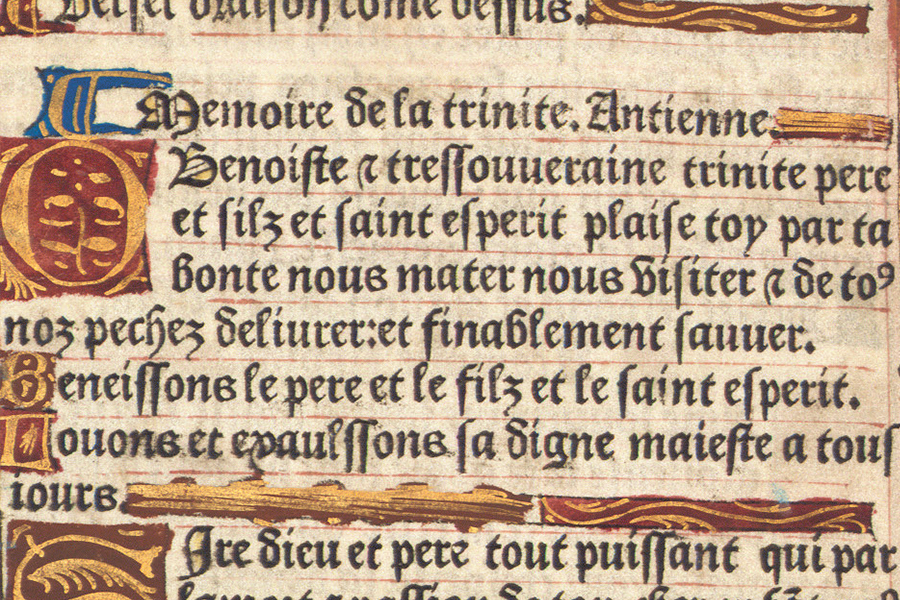 Verset oraison côme dessus.
Memoire de la trinite. Antienne.
O Benoiste ⁊ tressouueraine trinite pere
et filz et saint esperit plaise toy par ta
bonte nous mater nous visiter ⁊ de toꝰ
noz pechez deliurer: et finablement sauuer.
Beneissons le pere et le filz et le saint esperit.
Louons et exaulssons sa digne maieste a tous
iours.
Sire dieu et pere tout puissant qui par